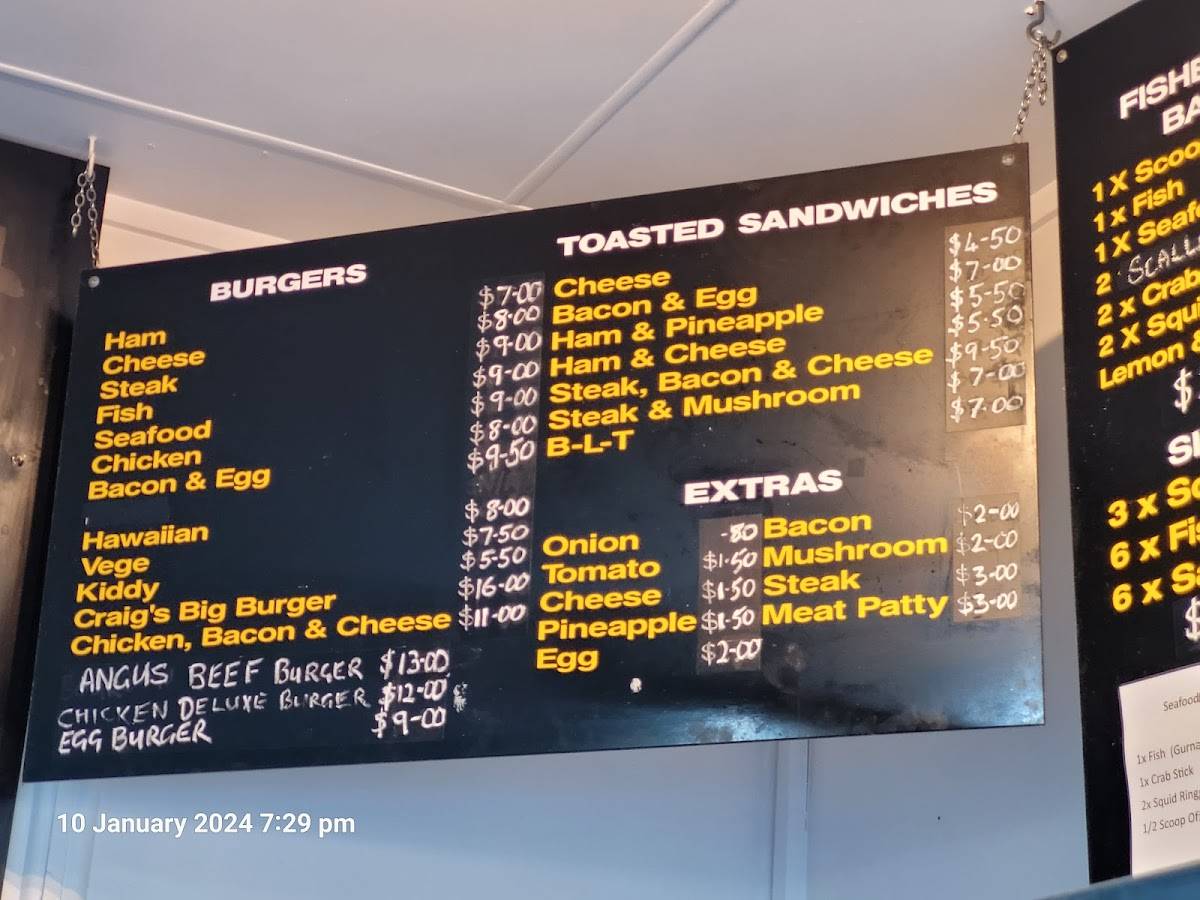 BURGERS
Ham $7-00
Cheese $8-00
Steak $9-00
Fish $9-00
Seafood $9-00
Chicken $8-00
Bacon & Egg $9-50
Hawaiian $8-00
Vege $7-50
Kiddy $5-50
Craig's Big Burger $16-00
Chicken, Bacon & Cheese $11-00
ANGUS BEEF BURGER $13-00
CHICKEN DELUXE BURGER $12-00
EGG BURGER $9-00
TOASTED SANDWICHES
Cheese $4-50
Bacon & Egg $7-00
Ham & Pineapple $5-50
Ham & Cheese $5-50
Steak, Bacon & Cheese $9-50
Steak & Mushroom $7-00
B-L-T $7-00
EXTRAS
Onion -80
Tomato $1-50
Cheese $1-50
Pineapple $1-50
Egg $2-00
Bacon $2-00
Mushroom $2-00
Steak $3-00
Meat Patty $3-00
1 X
1 x Fish
1 X
2
2 x Crab
2 X
Lemon
$
3 x
6 x
6 x
$
1x Fish
1x Crab Stick
2x Squid
1/2 Scoop
10 January 2024 7:29 pm